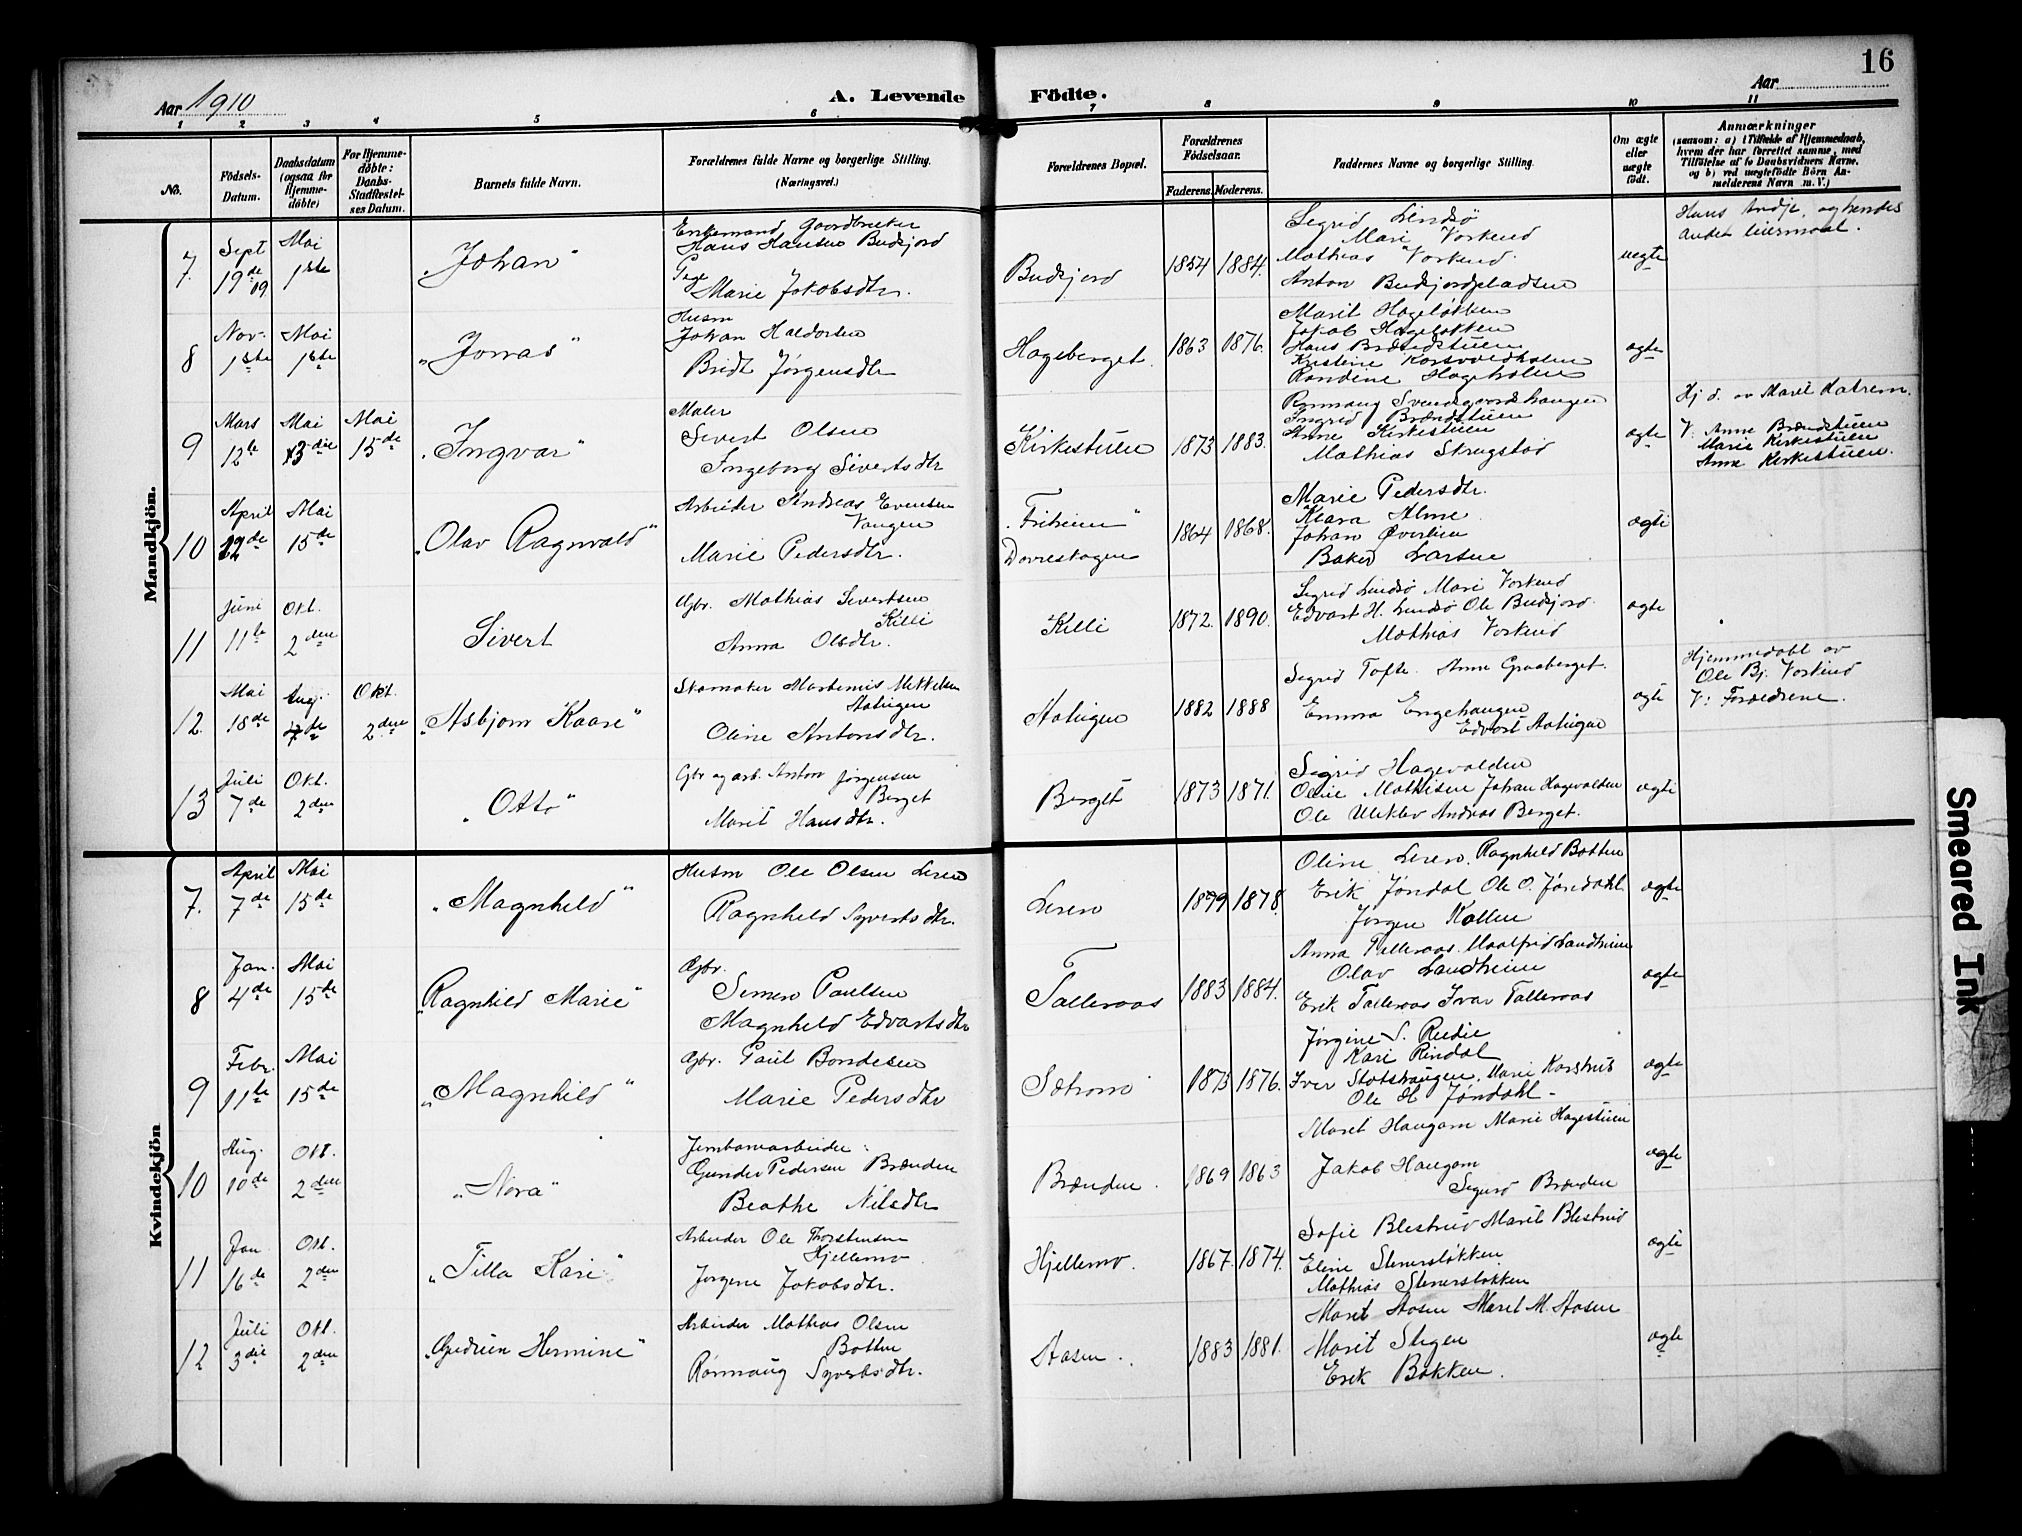 16
Aar 1910
A. Levende Födte.
Aar
1 2 3 4 5 6 7 8 9 10 11
No.
Födsels-Datum.
Daabsdatum (ogsaa for Hjemme-døbte)
For Hjemme-döbte: Daabs-Stadfæstelses Datum.
Barnets fulde Navn.
Forældrenes fulde Navne og borgerlige Stilling. (Næringsvei.)
Forældrenes Bopæl.
Forældrenes Födselsaar.
Faderens. Moderens.
Faddernes Navne og borgerlige Stilling.
Om ægte eller uægte födt.
Anmærkninger
(saasom: a) i Tilfælde af Hjemmedaab, hvem der har forrettet samme, med Tilföielse af to Daabsvidners Navne. og b) ved uægtefödte Börn Anmelderens Navn m. V.)
Mandkjön.
7. Sept 19de 09
Mai 1ste
"Johan"
Enkemand Gaardbruker
Hans Hansen Budsjord
Pige
Marie Jakobsdtr.
Budsjord
1854 1884.
Sigrid Lindsø
Mari Vorkend
Mathias Vorkend.
Anton Budsjordpladsen
uegte
Hans andet, og hendes
andet leiermaal.
8 Nov. 1ste
Mai 1ste
"Jonas"
Husm
Johan Haldorsen
Bridt Jørgensdtr
Hageberget.
1863 1876.
Marit Hageløkken
Jakob Hageløkken
Hans Brædstuen
Kristine Korsvoldholen
Randine Hageholen
egte
9 Mars 12te
Mai 13die
Mai 15de
"Ingvar"
Maler
Sivert Olsen
Ingeborg Sivertsdtr
Kirkestuen
1873 1883.
Rønnaug Svendsgaardshaugen
Ingrid Brændstuen
Anne Kirkestuen
Mathias Skrugstad
egte
Hj d. av Marit Hatrem.
V. Anne Brændstuen
Marie Kirkestuen
Anne Kirkestuen.
10 April 22de
Mai 15de
"Olav Ragnvald"
Arbeider Andreas Evensen
Vangen
Marie Pedersdtr.
"Friheim"
Dovreskogen
1864 1868.
Marie Pedersdtr.
Klara Alme
Johan Øverlien
Baker Larsen
egte
11 Juni 11te
Okt. 2den
Sivert
Gbr. Mathias Sivertsen
Killi
Anna Olsdtr.
Killi
1872. 1890.
Sigrid Lindsø Mari Vorkend
Edvart H. Lindsø Ole Budsjord.
Mathias Vorkend
egte
12. Mai 18de
Aug. 7de
Okt. 2den
"Asbjørn Kaare"
Skomaker Martenius Mikkelsen
Aatingen
Oline Antonsdtr.
Aatingen
1882 1888
Sigrid Tofte. Anne Graaberget.
Emma Engehaugen
Edvart Aatingen
egte
Hjemmedøbt av
Ole Bj. Vorkend
V: Forældrene.
13 Juli 7de
Okt. 2den
"Otto"
Gbr og arb. Anton Jørgensen
Berget
Marit Hansdtr.
Berget
1873 1871.
Sigrid Hagevolden
Oline Mathisen Johan Hagevolden
Ole Uleklev Andreas Berget.
egte
Kvindekjön
7. April 7de
Mai 15de
"Magnhild"
Husm Ole Olsen Leren
Ragnhild Syvertsdtr.
Leren
1879 1878.
Oline Leren. Ragnhild Botten
Erik Jøndal Ole O. Jøndahl
Jørgen Kollen
egte
8 Jan. 4de
Mai 15de
"Ragnhild Marie"
Gbr.
Simen Paulsen
Magnhild Edvartsdtr
Talleraas
1883 1884.
Anna Talleraas. Maalfrid Landheim
Olav Landheim
Erik Talleraas Ivar Talleraas
egte
9 Febr. 11te
Mai 15de
"Magnhild"
Gbr. Paul Bondesen
Marie Pedersdtr
Sætrom
1873 1876.
Jørgine S. Rudie
Kari Rindal
Iver Slotshaugen. Marie Korshus
Ole H Jøndahl -
egte
10 Aug. 10de
Okt. 2den
"Nora"
Jernbanearbeider
Gunder Pedersen Brænden
Beathe Nilsdtr
Brænden.
1869 1863
Marit Haugom Marie Hagestuen
Jakob Haugom
Sigurd Brænden
egte
11 Jan. 16de
Okt. 2den
"Tilla Kari"
Arbeider Ole Thorstensen
Hjellemo
Jørgine Jakobsdtr.
Hjellemo.
1867. 1874.
Sofie Blestrud Marit Blestrud
Eline Stenersløkken
Mathias Stenersløkken
egte
12 Juli 3die
Okt. 2den
"Gudrun Hermine"
Arbeider Mathias Olsen
Botten
Rønnaug Syvertsdtr.
Aasen.
1883 1881.
Marit Aasen Marit M. Aasen
Marit Stigen
Erik Bakken.
egte
Smeared Ink